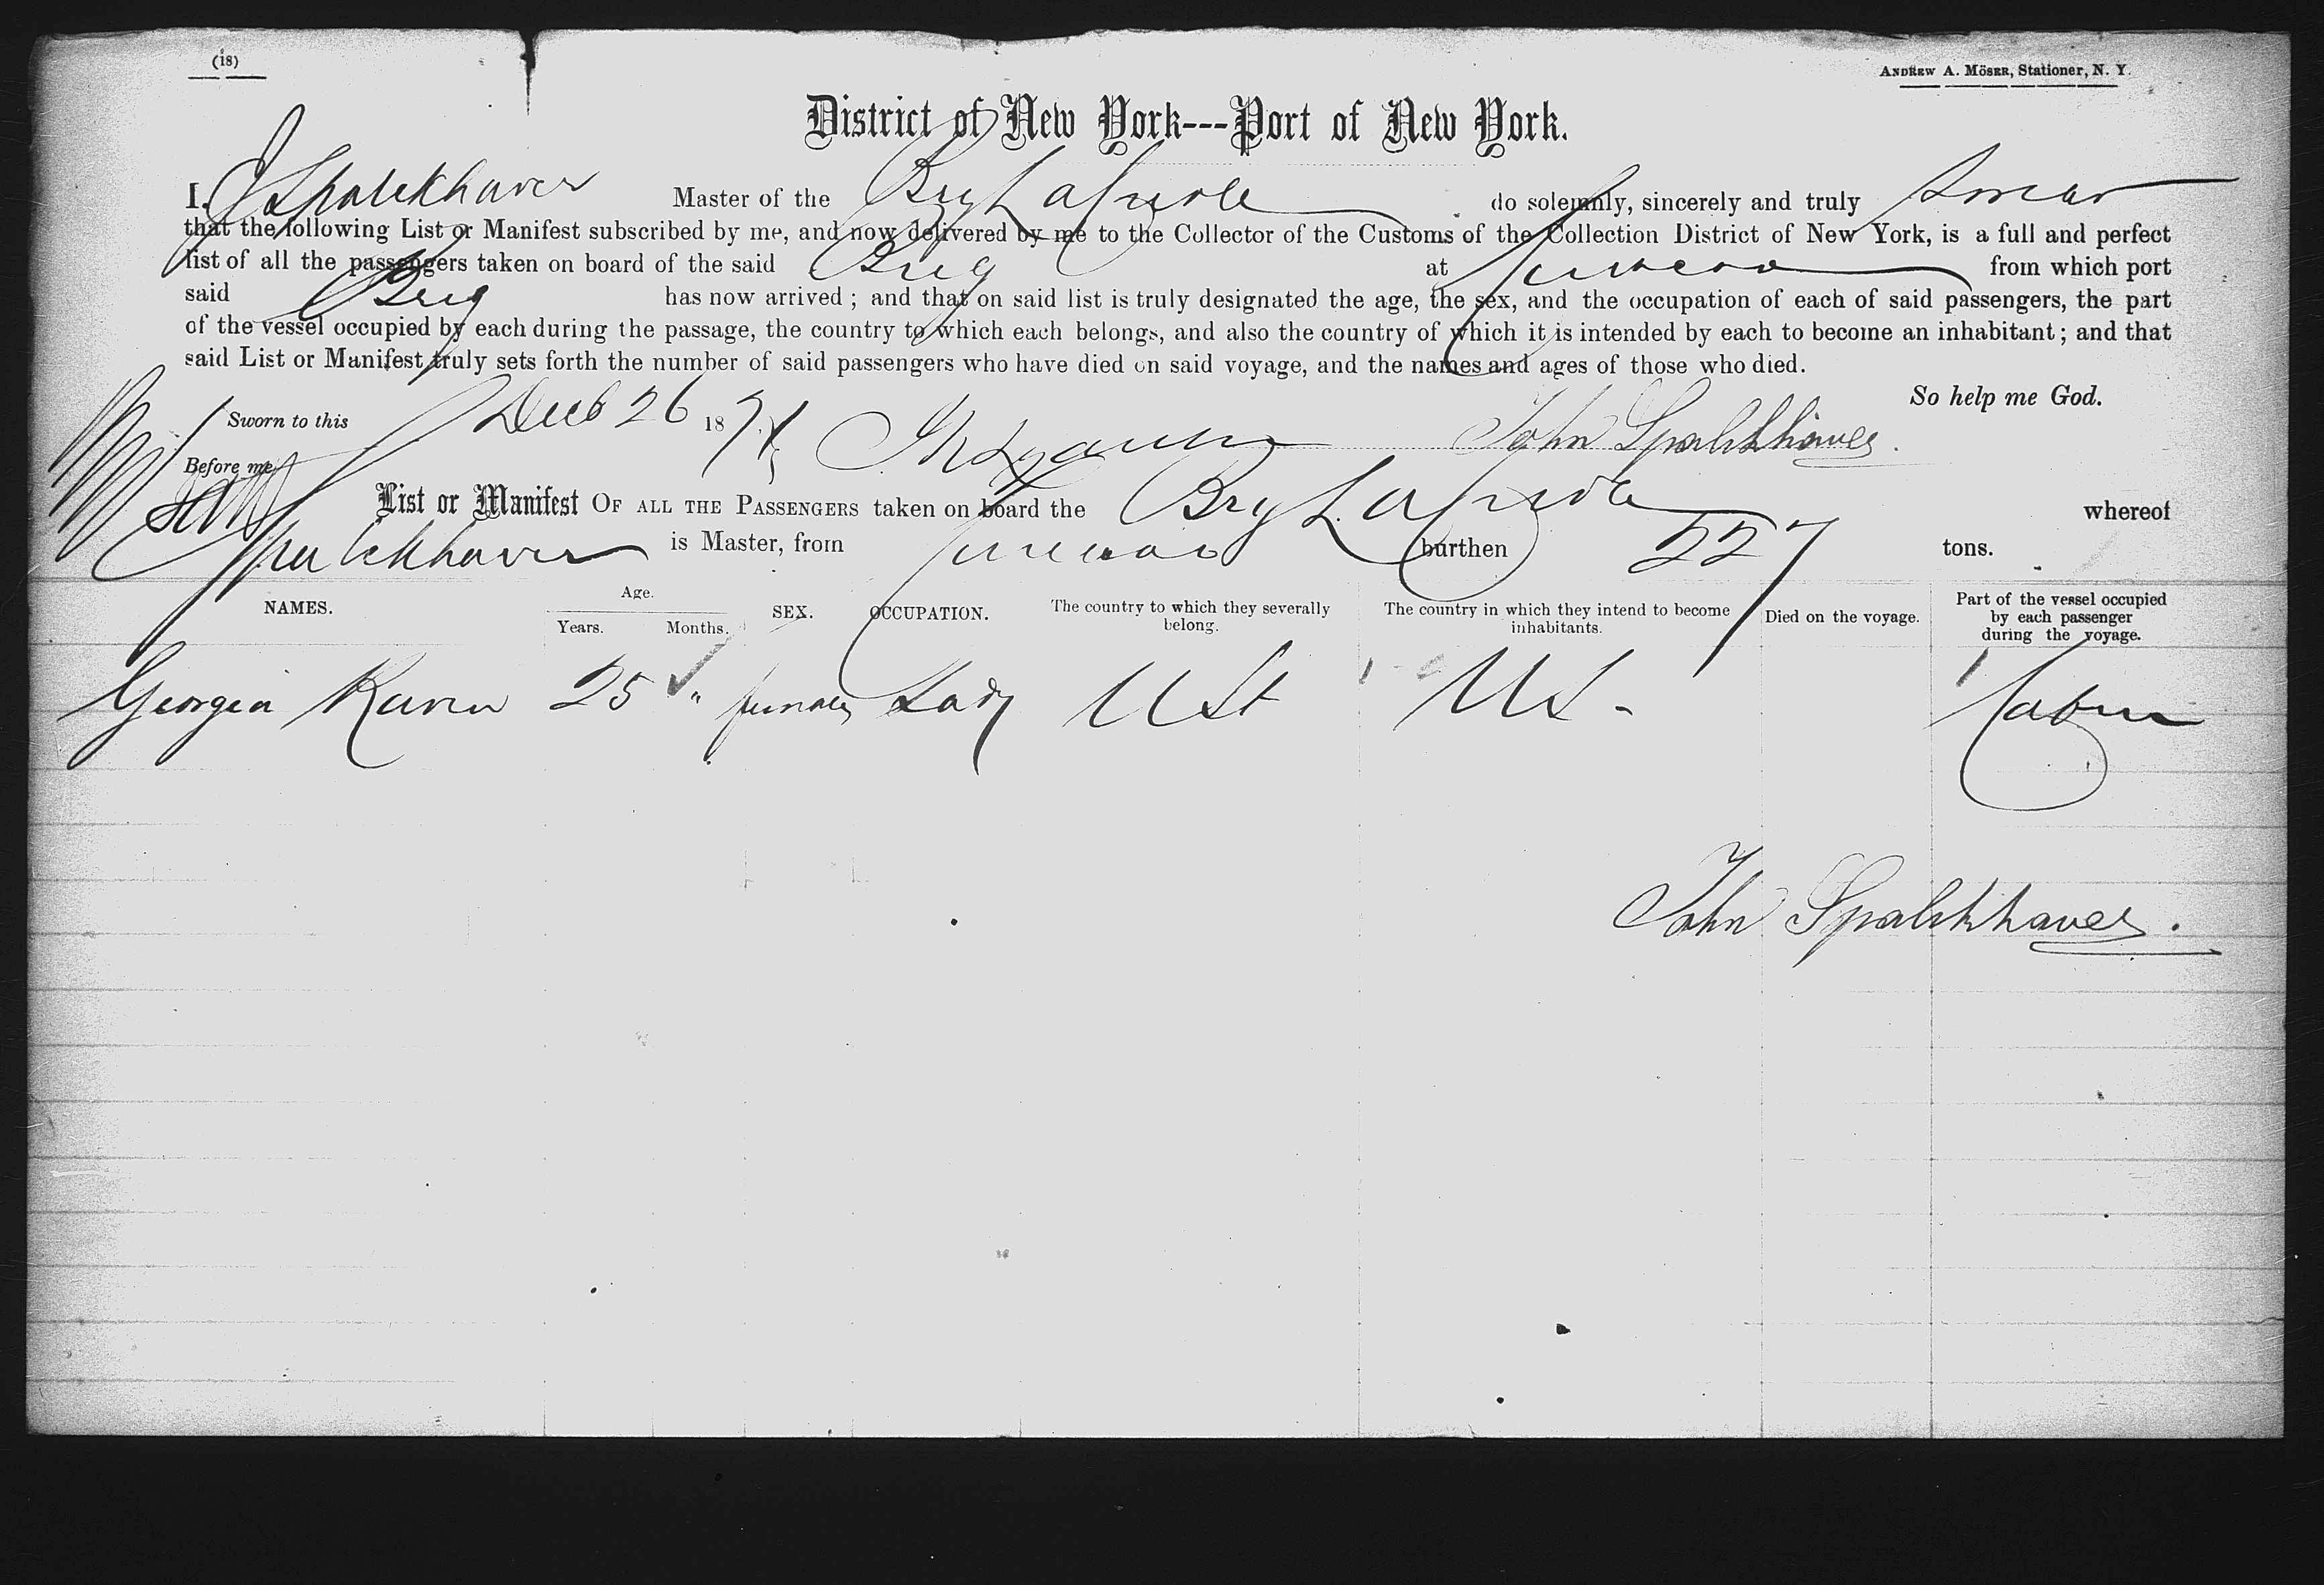 (18)
ANDREW A. MÖSER, Stationer, N. Y.
District of New York---Port of New York.
I. J Spalckhaver Master of the Brig do solemnly, sincerely and truly swear
that the following List or Manifest subscribed by me, and now delivered by me to the Collector of the Customs of the Collection District of New York, is a full and perfect
list of all the passengers taken on board of the said Brig at Curacao from which port
said Brig has now arrived; and that on said list is truly designated the age, the sex, and the occupation of each of said passengers, the part
of the vessel occupied by each during the passage, the country to which each belongs, and also the country of which it is intended by each to become an inhabitant; and that
said List or Manifest truly sets forth the number of said passengers who have died on said voyage, and the names and ages of those who died.
So help me God.
Sworn to this Decb 26 1871 John Spalckhaver.
Before me
List or Manifest OF ALL THE PASSENGERS taken on board the Brig whereof
Spalckhaver is Master, from Curacao burthen 227 tons.
NAMES. Age. Years. Months. SEX. OCCUPATION. The country to which they severally belong. The country in which they intend to become inhabitants. Died on the voyage. Part of the vessel occupied by each passenger during the voyage.
Georgia 25 " female Lady U St US - Cabin
John Spalckhaver.